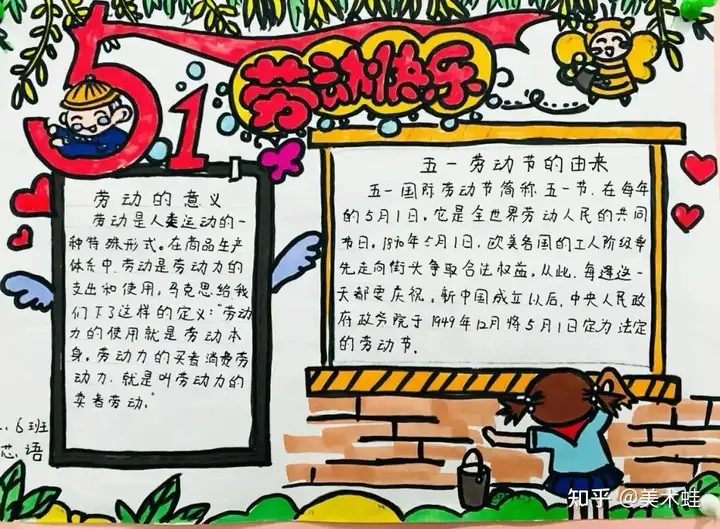 51
劳动快乐
劳动的意义
劳动是人类运动的一
种特殊形式。在商品生产
体系中,劳动是劳动力的
支出和使用。马克思给我
们下了这样的定义:"劳动
力的使用就是劳动本
身。劳动力的买者消费劳
动力,就是叫劳动力的
卖者劳动。"
五一劳动节的由来
五一国际劳动节简称五一节,在每年
的5月1日。它是全世界劳动人民的共同
节日。1890年5月1日,欧美各国的工人阶级率
先走向街头争取合法权益。从此,每逢这一
天都要庆祝。新中国成立以后,中央人民政
府政务院于1949年12月将5月1日定为法定
的劳动节。
6班
芯语
知乎 @美术蛙